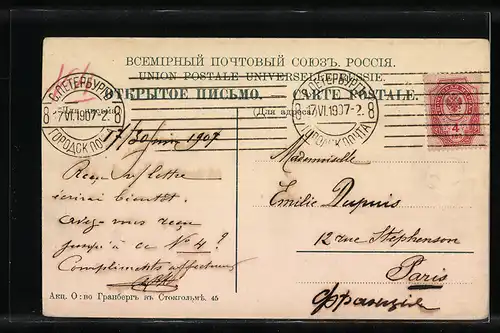 ВСЕМІРНЫЙ ПОЧТОВЫЙ СОЮЗЪ. РОССІЯ.
UNION POSTALE UNIVERSELLE RUSSIE.
ОТКРЫТОЕ ПИСЬМО. CARTE POSTALE.
(Для адреса)
С.ПЕТЕРБУРГЪ
8 17 VI 1907-2. 8
ГОРОДСК. ПОЧТА
С.ПЕТЕРБУРГЪ
8 17 VI 1907-2. 8
ГОРОДСК. ПОЧТА
4
17/30 juin 1907
Reçu lettre
écrirai bientôt.
avez-vous reçu
jusqu'à ce No 4 ?
Compliments affectueux
Mademoiselle
Emilie Dupuis
12 rue Stephenson
Paris
Франція
Акц. О:во Гранбергъ въ Стокгольмѣ. 45